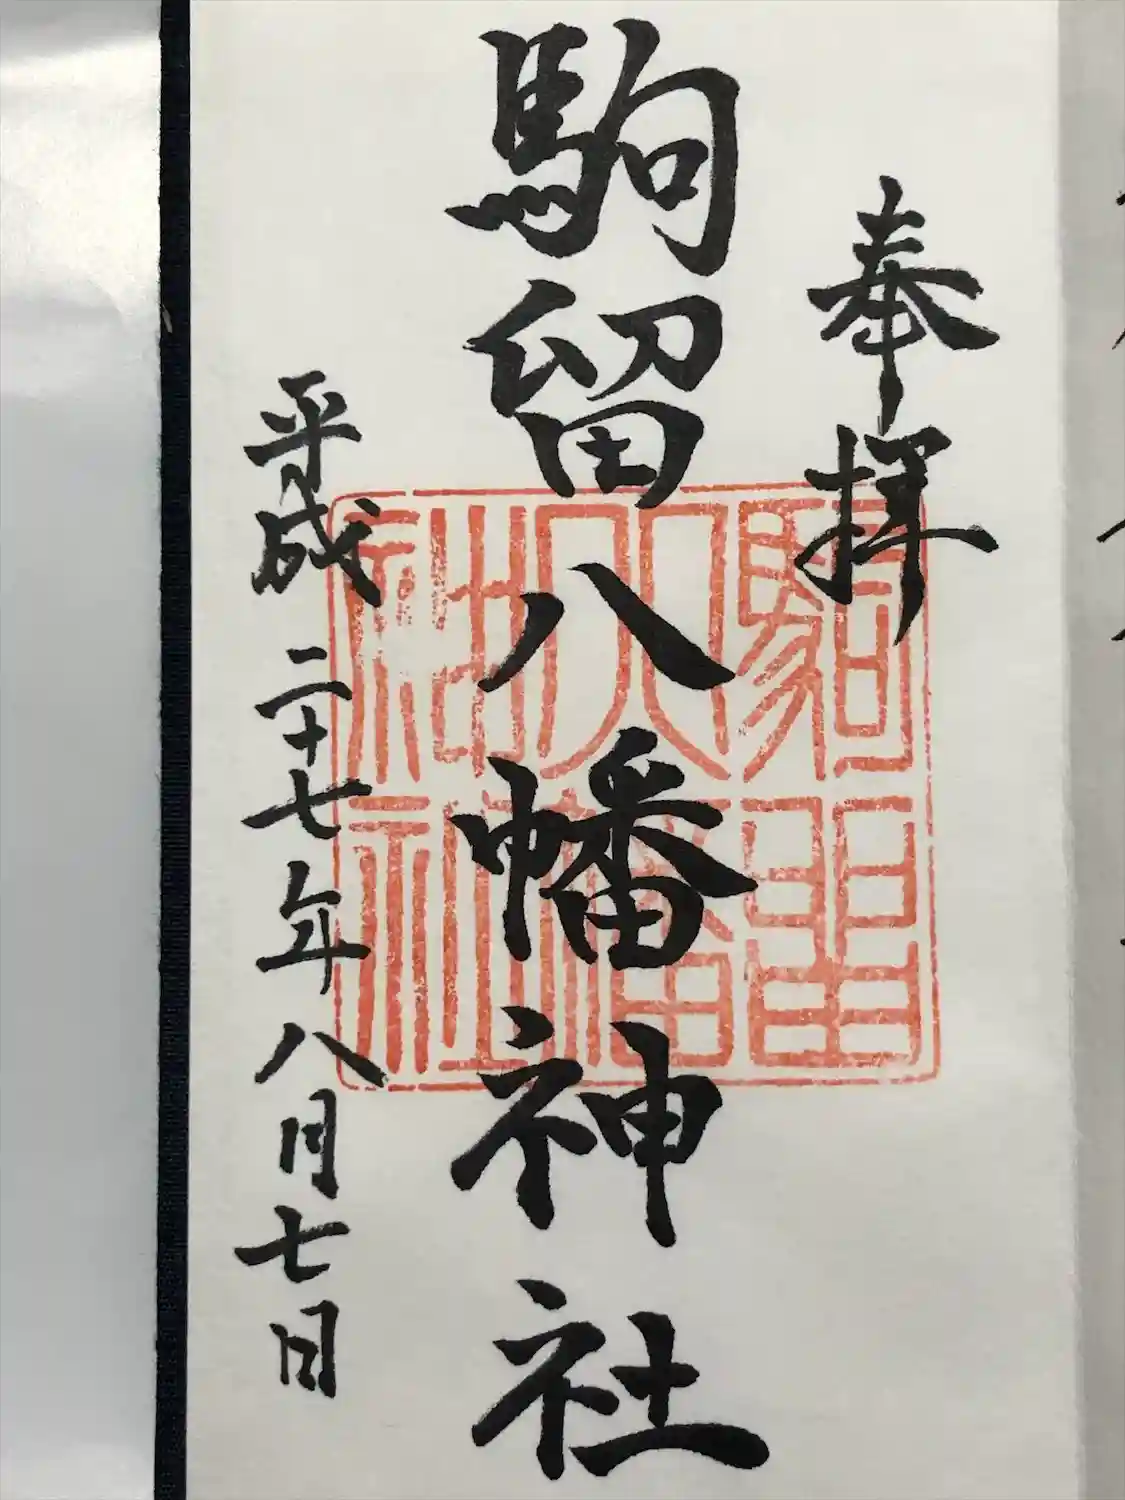 奉拝
駒留八幡神社
駒留
八幡
神社
平成二十七年八月七日